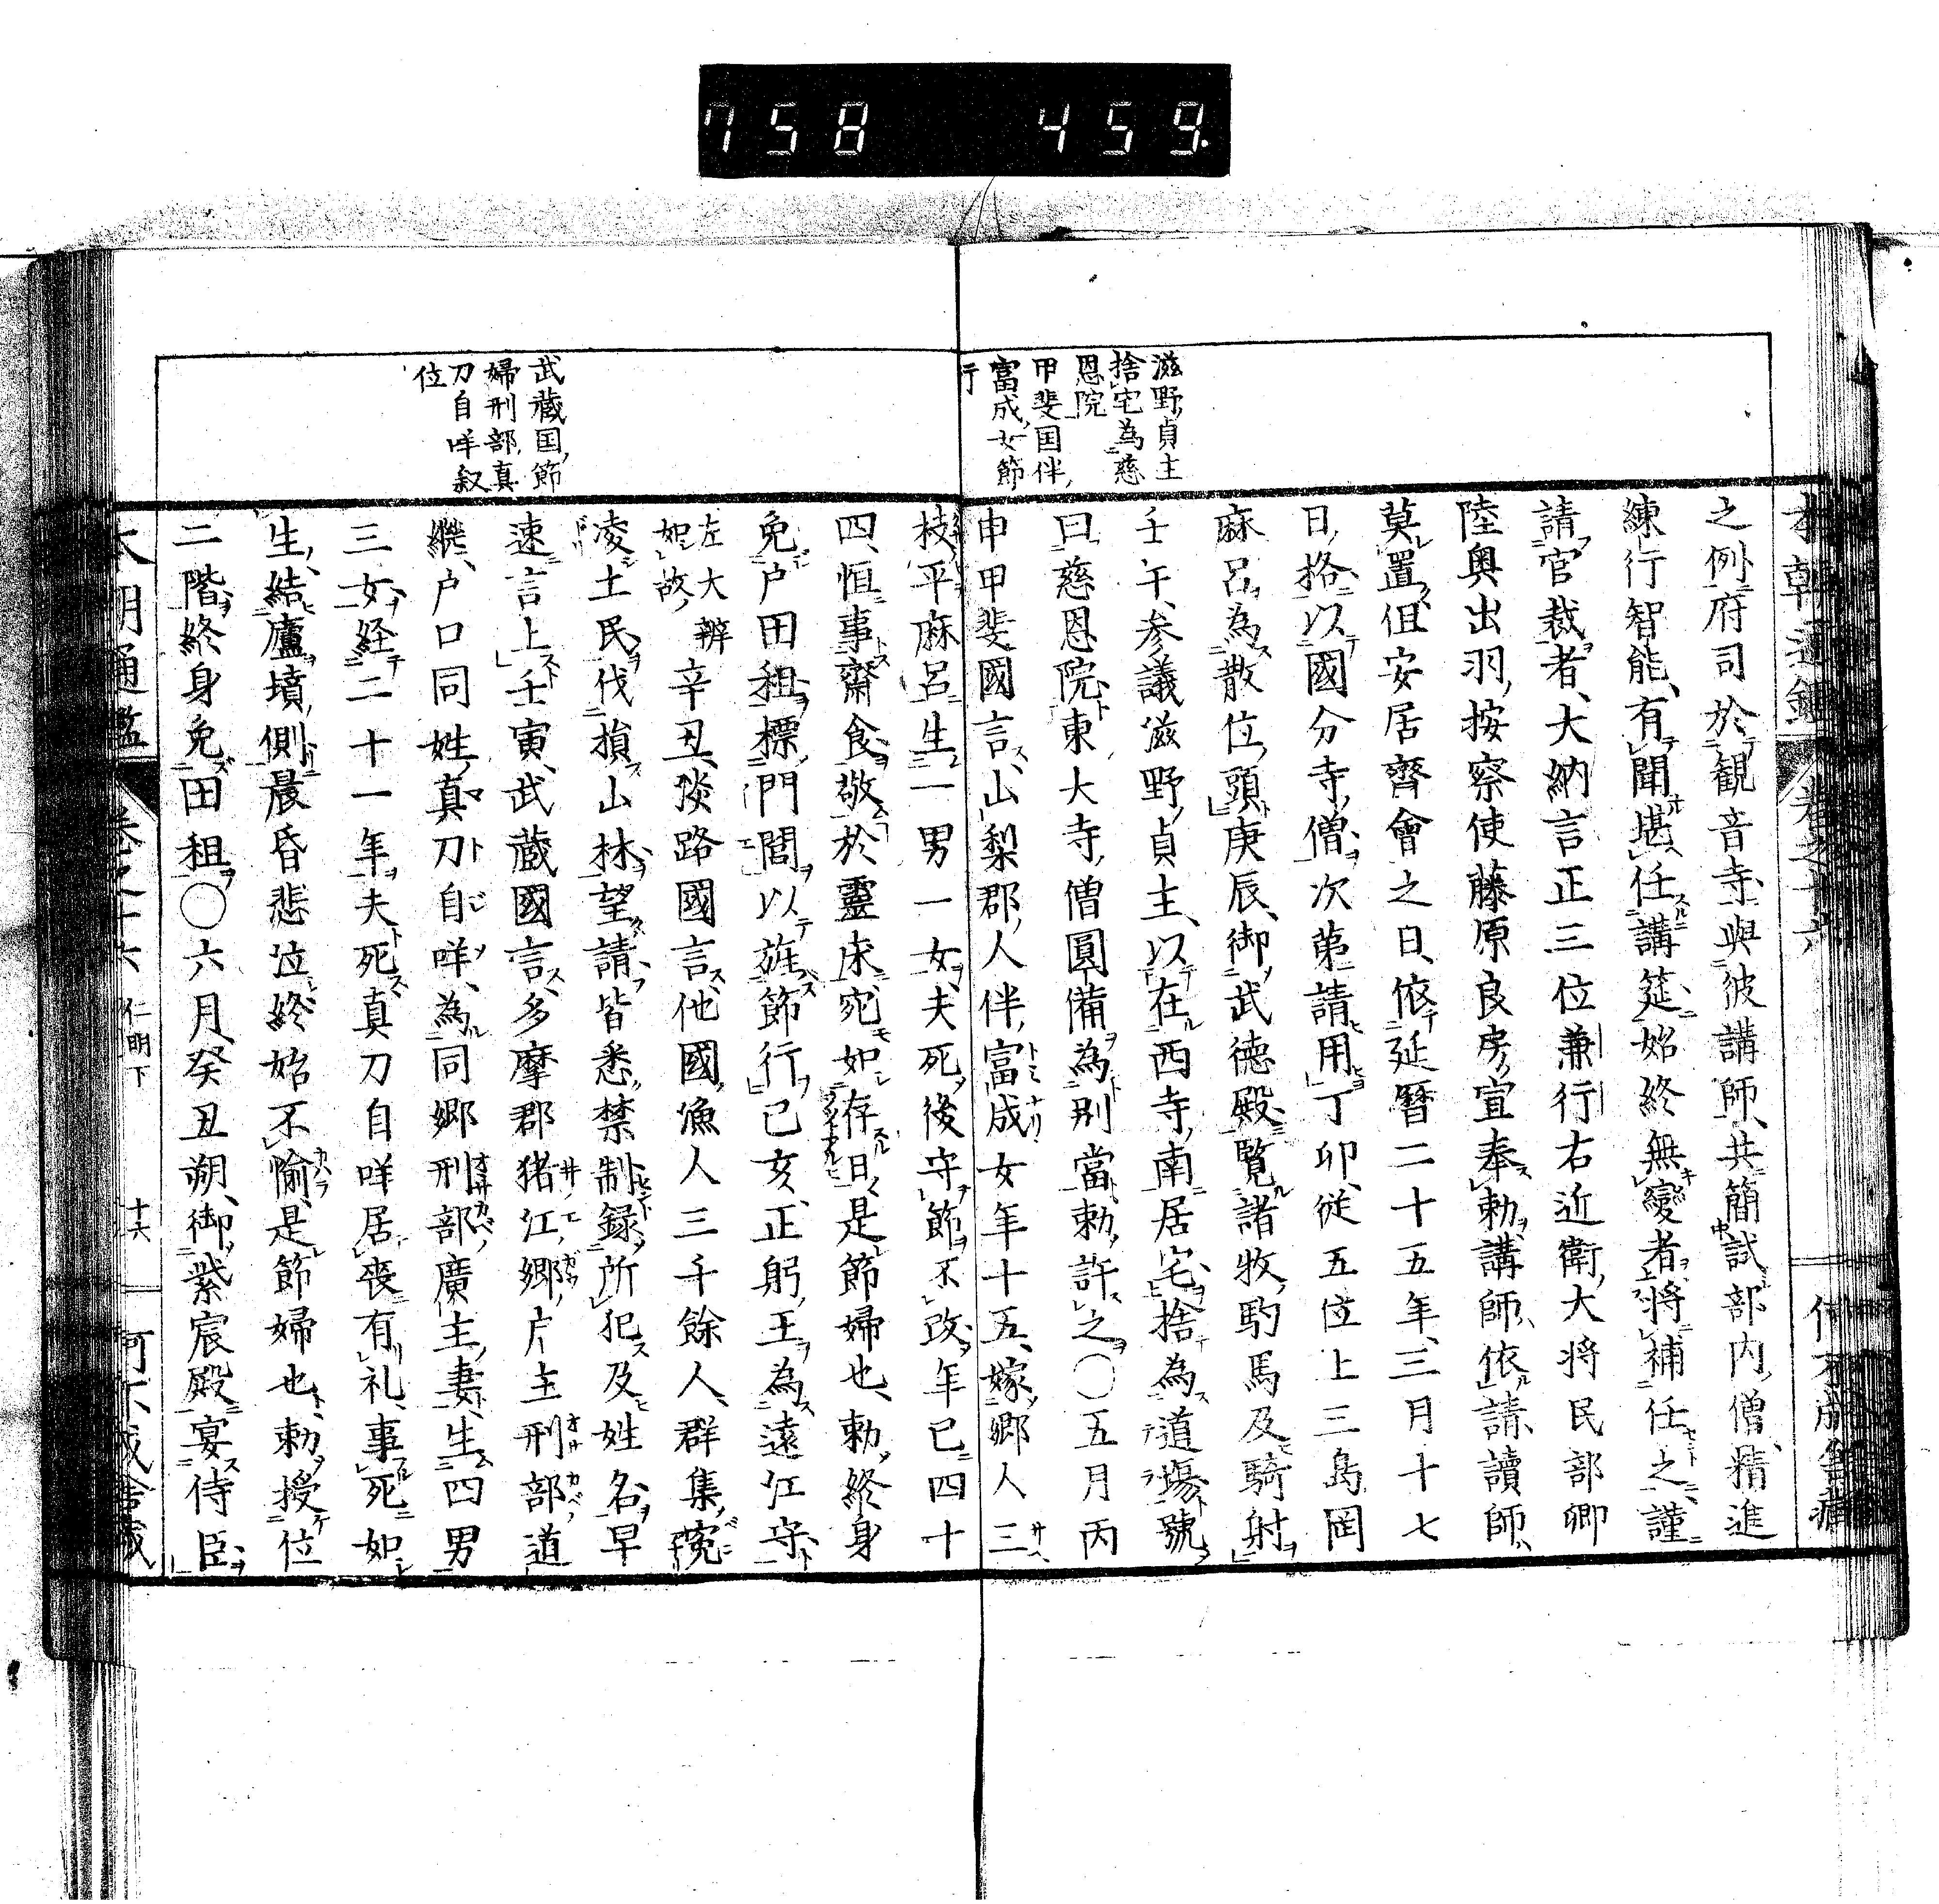 758 459.
滋野貞主
捨宅為慈
恩院
甲斐国伴
富成女節
行
之例府司於観音寺與彼講師共簡試部内僧精進
練行智能有聞堪任講筵始終無變者將補任之謹
請官裁者大納言正三位兼行右近衛大将民部卿
陸奥出羽按察使藤原良房宣奉勅講師依請讀師
莫置但安居齊會之日依延暦二十五年三月十七
日格以國分寺僧次第請用丁卯従五位上三島岡
麻呂為散位頭庚辰御武徳殿覧諸牧駒馬及騎射
壬午参議滋野貞主以在西寺南居宅捨為道場號
曰慈恩院東大寺僧圓備為別當勅許之〇五月丙
申甲斐國言山梨郡人伴富成女年十五嫁郷人三
武藏国節
婦刑部真
刀自咩叙
位
枝平麻呂生一男一女夫死後守節不改年已四十
四恒事齋食敬於靈床宛如存日是節婦也勅終身
免户田租標門閭以旌節行已亥正躬王為遠江守
左大辨如故辛丑淡路國言他國漁人三千餘人群集寃
凌土民伐損山林望請皆悉禁制録所犯及姓名早
速言上壬寅武藏國言多摩郡猪江郷户主刑部道
継户口同姓真刀自咩為同郷刑部廣主妻生四男
三女経二十一年夫死真刀自咩居喪有礼事死如
生結廬墳側晨昏悲泣終始不愉是節婦也勅授位
二階終身免田租〇六月癸丑朔御紫宸殿宴侍臣
本朝通鑑 卷之十六 仁明下 十六